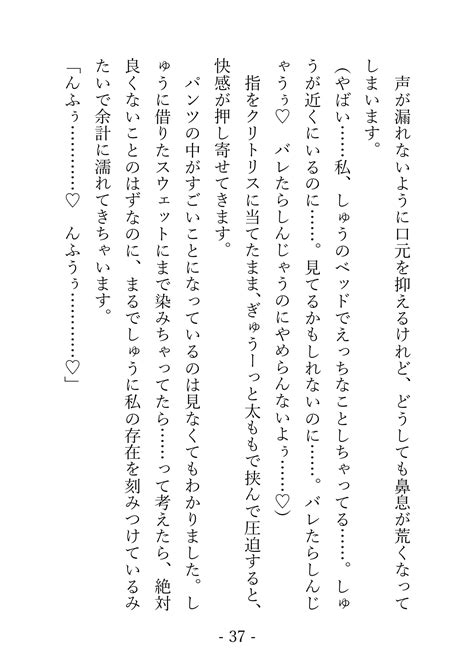 声が漏れないように口元を抑えるけれど、どうしても鼻息が荒くなって
しまいます。
（やばい……私、しゅうのベッドでえっちなことしちゃってる……。しゅ
うが近くにいるのに……。見てるかもしれないのに……。バレたらしんじ
ゃうぅ♡　バレたらしんじゃうのにやめらんないよぅ……♡）
指をクリトリスに当てたまま、ぎゅうーっと太ももで挟んで圧迫すると、
快感が押し寄せてきます。
パンツの中がすごいことになっているのは見なくてもわかりました。し
ゅうに借りたスウェットにまで染みちゃってたら……って考えたら、絶対
良くないことのはずなのに、まるでしゅうに私の存在を刻みつけているみ
たいで余計に濡れてきちゃいます。
「んふぅ…………♡　んふうぅ…………♡」
- 37 -